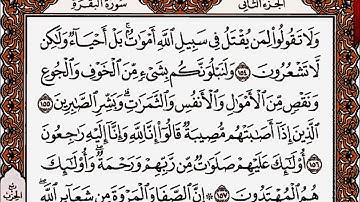 الجزء الثاني
سورة البقرة
وَلَا تَقُولُوا۟ لِمَن يُقْتَلُ فِى سَبِيلِ ٱللَّهِ أَمْوَٰتٌۢ ۚ بَلْ أَحْيَآءٌ وَلَٰكِن
لَّا تَشْعُرُونَ ١٥٤ وَلَنَبْلُوَنَّكُم بِشَىْءٍ مِّنَ ٱلْخَوْفِ وَٱلْجُوعِ
وَنَقْصٍ مِّنَ ٱلْأَمْوَٰلِ وَٱلْأَنفُسِ وَٱلثَّمَرَٰتِ ۗ وَبَشِّرِ ٱلصَّٰبِرِينَ ١٥٥
ٱلَّذِينَ إِذَآ أَصَٰبَتْهُم مُّصِيبَةٌ قَالُوٓا۟ إِنَّا لِلَّهِ وَإِنَّآ إِلَيْهِ رَٰجِعُونَ
١٥٦ أُو۟لَٰٓئِكَ عَلَيْهِمْ صَلَوَٰتٌ مِّن رَّبِّهِمْ وَرَحْمَةٌ ۖ وَأُو۟لَٰٓئِكَ
هُمُ ٱلْمُهْتَدُونَ ١٥٧ ۞ إِنَّ ٱلصَّفَا وَٱلْمَرْوَةَ مِن شَعَآئِرِ ٱللَّهِ ۖ
ربع
الحزب